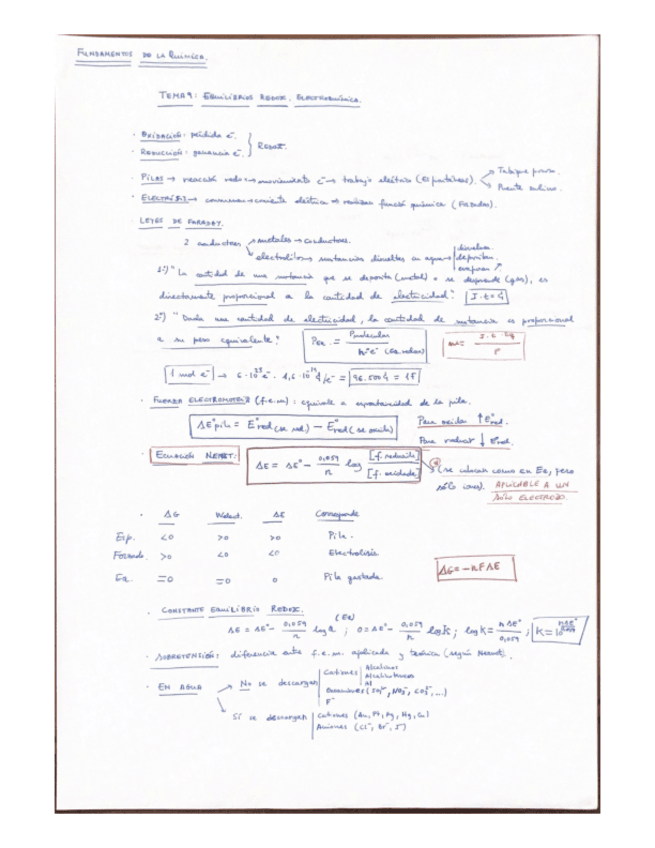 FUNDAMENTOS DE LA QUÍMICA.
TEMA 9: EQUILIBRIOS REDOX. ELECTROQUÍMICA.
· OXIDACIÓN: pérdida e⁻.
· REDUCCIÓN: ganancia e⁻. } REDOX.
· PILAS → reacción redox → movimiento e⁻ → trabajo eléctrico (Espontáneas). Tabique poroso.
Puente salino.
· ELECTRÓLISIS → corriente eléctrica → reacción química (Forzadas).
· LEYES DE FARADAY.
2 conductores metales → conductores.
electrolitos → sustancias disueltas en agua → disuelven
depositan
evaporan ↗
1ª) "La cantidad de una sustancia que se deposita (metal) o se desprende (gas), es
directamente proporcional a la cantidad de electricidad". I·t = q
2ª) "Dada una cantidad de electricidad, la cantidad de sustancia es proporcional
a su peso equivalente". Peq. = Pmolecular / nº e⁻ (en redox) m = I·t·Eq / F
1 mol e⁻ → 6·10²³ e⁻ · 1,6·10⁻¹⁹ q/e⁻ = 96.500 q = 1F
· FUERZA ELECTROMOTRIZ (f.e.m): equivale a espontaneidad de la pila.
ΔE°pila = E°red (se red.) − E°red (se oxida) Para oxidar ↑ E°red.
Para reducir ↓ E°red.
· ECUACIÓN NERNST: ΔE = ΔE° − 0,059/n log [f. reducida]/[f. oxidada] (se colocan como en Ec, pero
sólo iones). APLICABLE A UN
SÓLO ELECTRODO.
· ΔG Welect. ΔE Corresponde
Esp. <0 >0 >0 Pila.
Forzada. >0 <0 <0 Electrólisis
Eq. =0 =0 0 Pila gastada.
ΔG = −nFΔE
· CONSTANTE EQUILIBRIO REDOX.
(Eq)
ΔE = ΔE° − 0,059/n log Q ; 0 = ΔE° − 0,059/n log K ; log K = nΔE°/0,059 ; K = 10^(nΔE°/0,059)
· SOBRETENSIÓN: diferencia entre f.e.m. aplicada y teórica (según Nernst).
· EN AGUA → No se descargan Cationes Alcalinos
Alcalinotérreos
Al
Oxoaniones (SO₄²⁻, NO₃⁻, CO₃²⁻, ...)
F⁻
Sí se descargan Cationes (Au, Pt, Ag, Hg, Cu)
Aniones (Cl⁻, Br⁻, S²⁻)